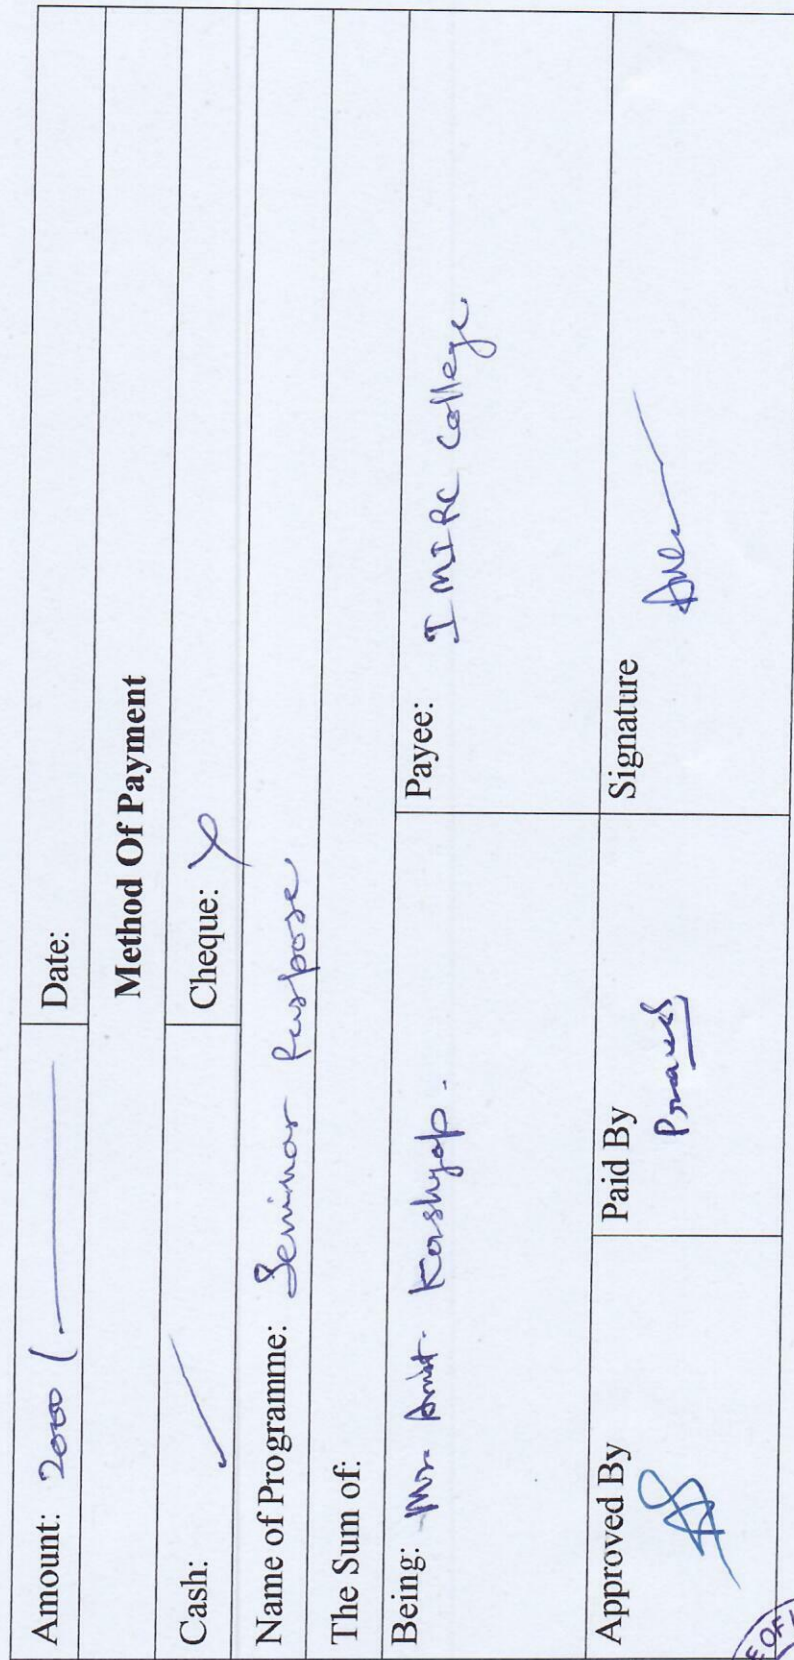 Amount: 2000/- Date:
Method Of Payment
Cash: Cheque: X
Name of Programme: Seminar Purpose
The Sum of:
Being: Mr. Amit Kashyap.
Payee: IMIRC College
Approved By
Paid By
Signature
E OF